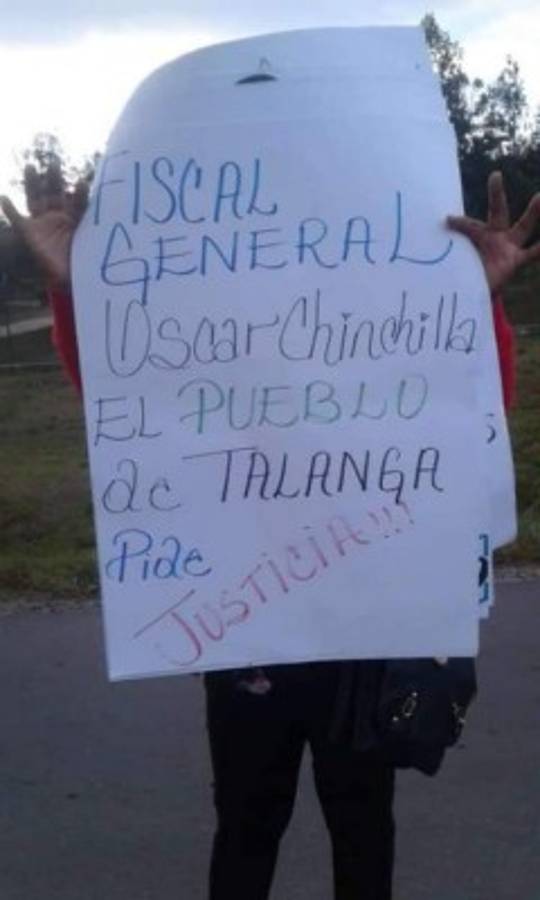 FISCAL
GENERAL
Oscar Chinchilla
EL PUEBLO
de TALANGA
Pide
JUSTICIA!!!